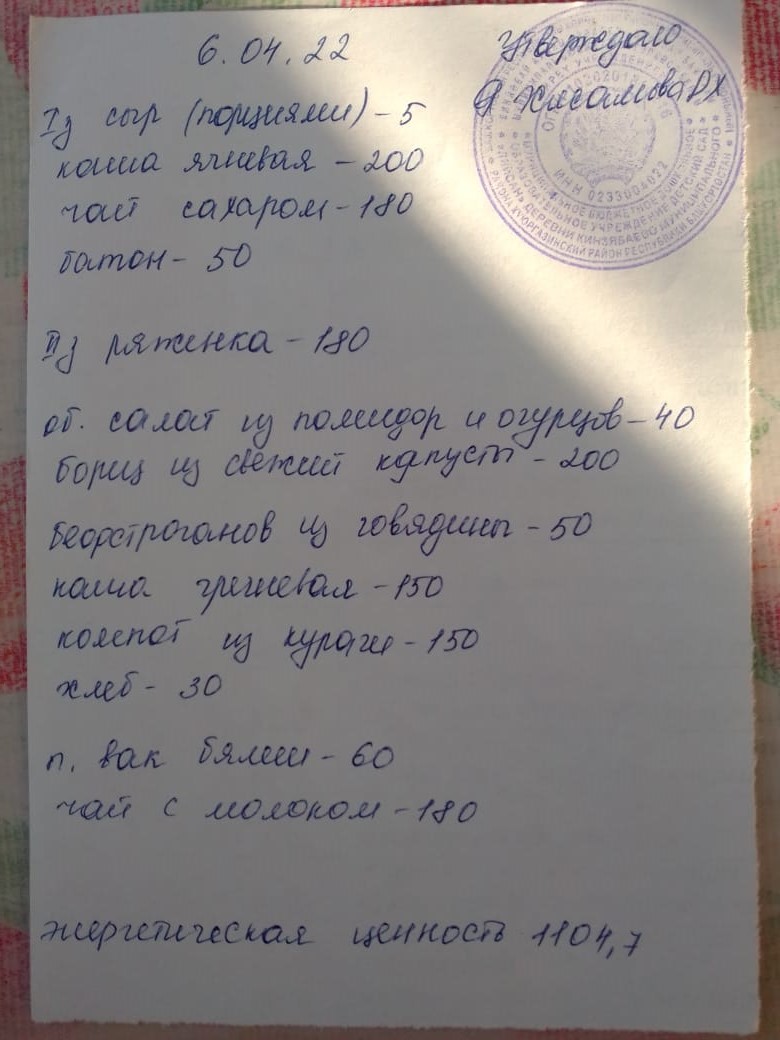 6.04.22
Утверждаю
Хисамова
Iз сыр (порциями) - 5
каша ячневая - 200
чай сахаром - 180
батон - 50
IIз ряженка - 180
об. салат из помидор и огурцов - 40
борщ из свежий капусты - 200
беофстроганов из говядины - 50
каша гречневая - 150
компот из кураги - 150
хлеб - 30
п. вак бялиш - 60
чай с молоком - 180
энергетическая ценность 1104,7
ИНН 0233004022
ОБРАЗОВАТЕЛЬНОЕ УЧРЕЖДЕНИЕ ДЕТСКИЙ САД
ДЕРЕВНИ КИНЗЯБАЕВО МУНИЦИПАЛЬНОГО
РАЙОНА КУЮРГАЗИНСКИЙ РАЙОН РЕСПУБЛИКИ БАШКОРТОСТАН